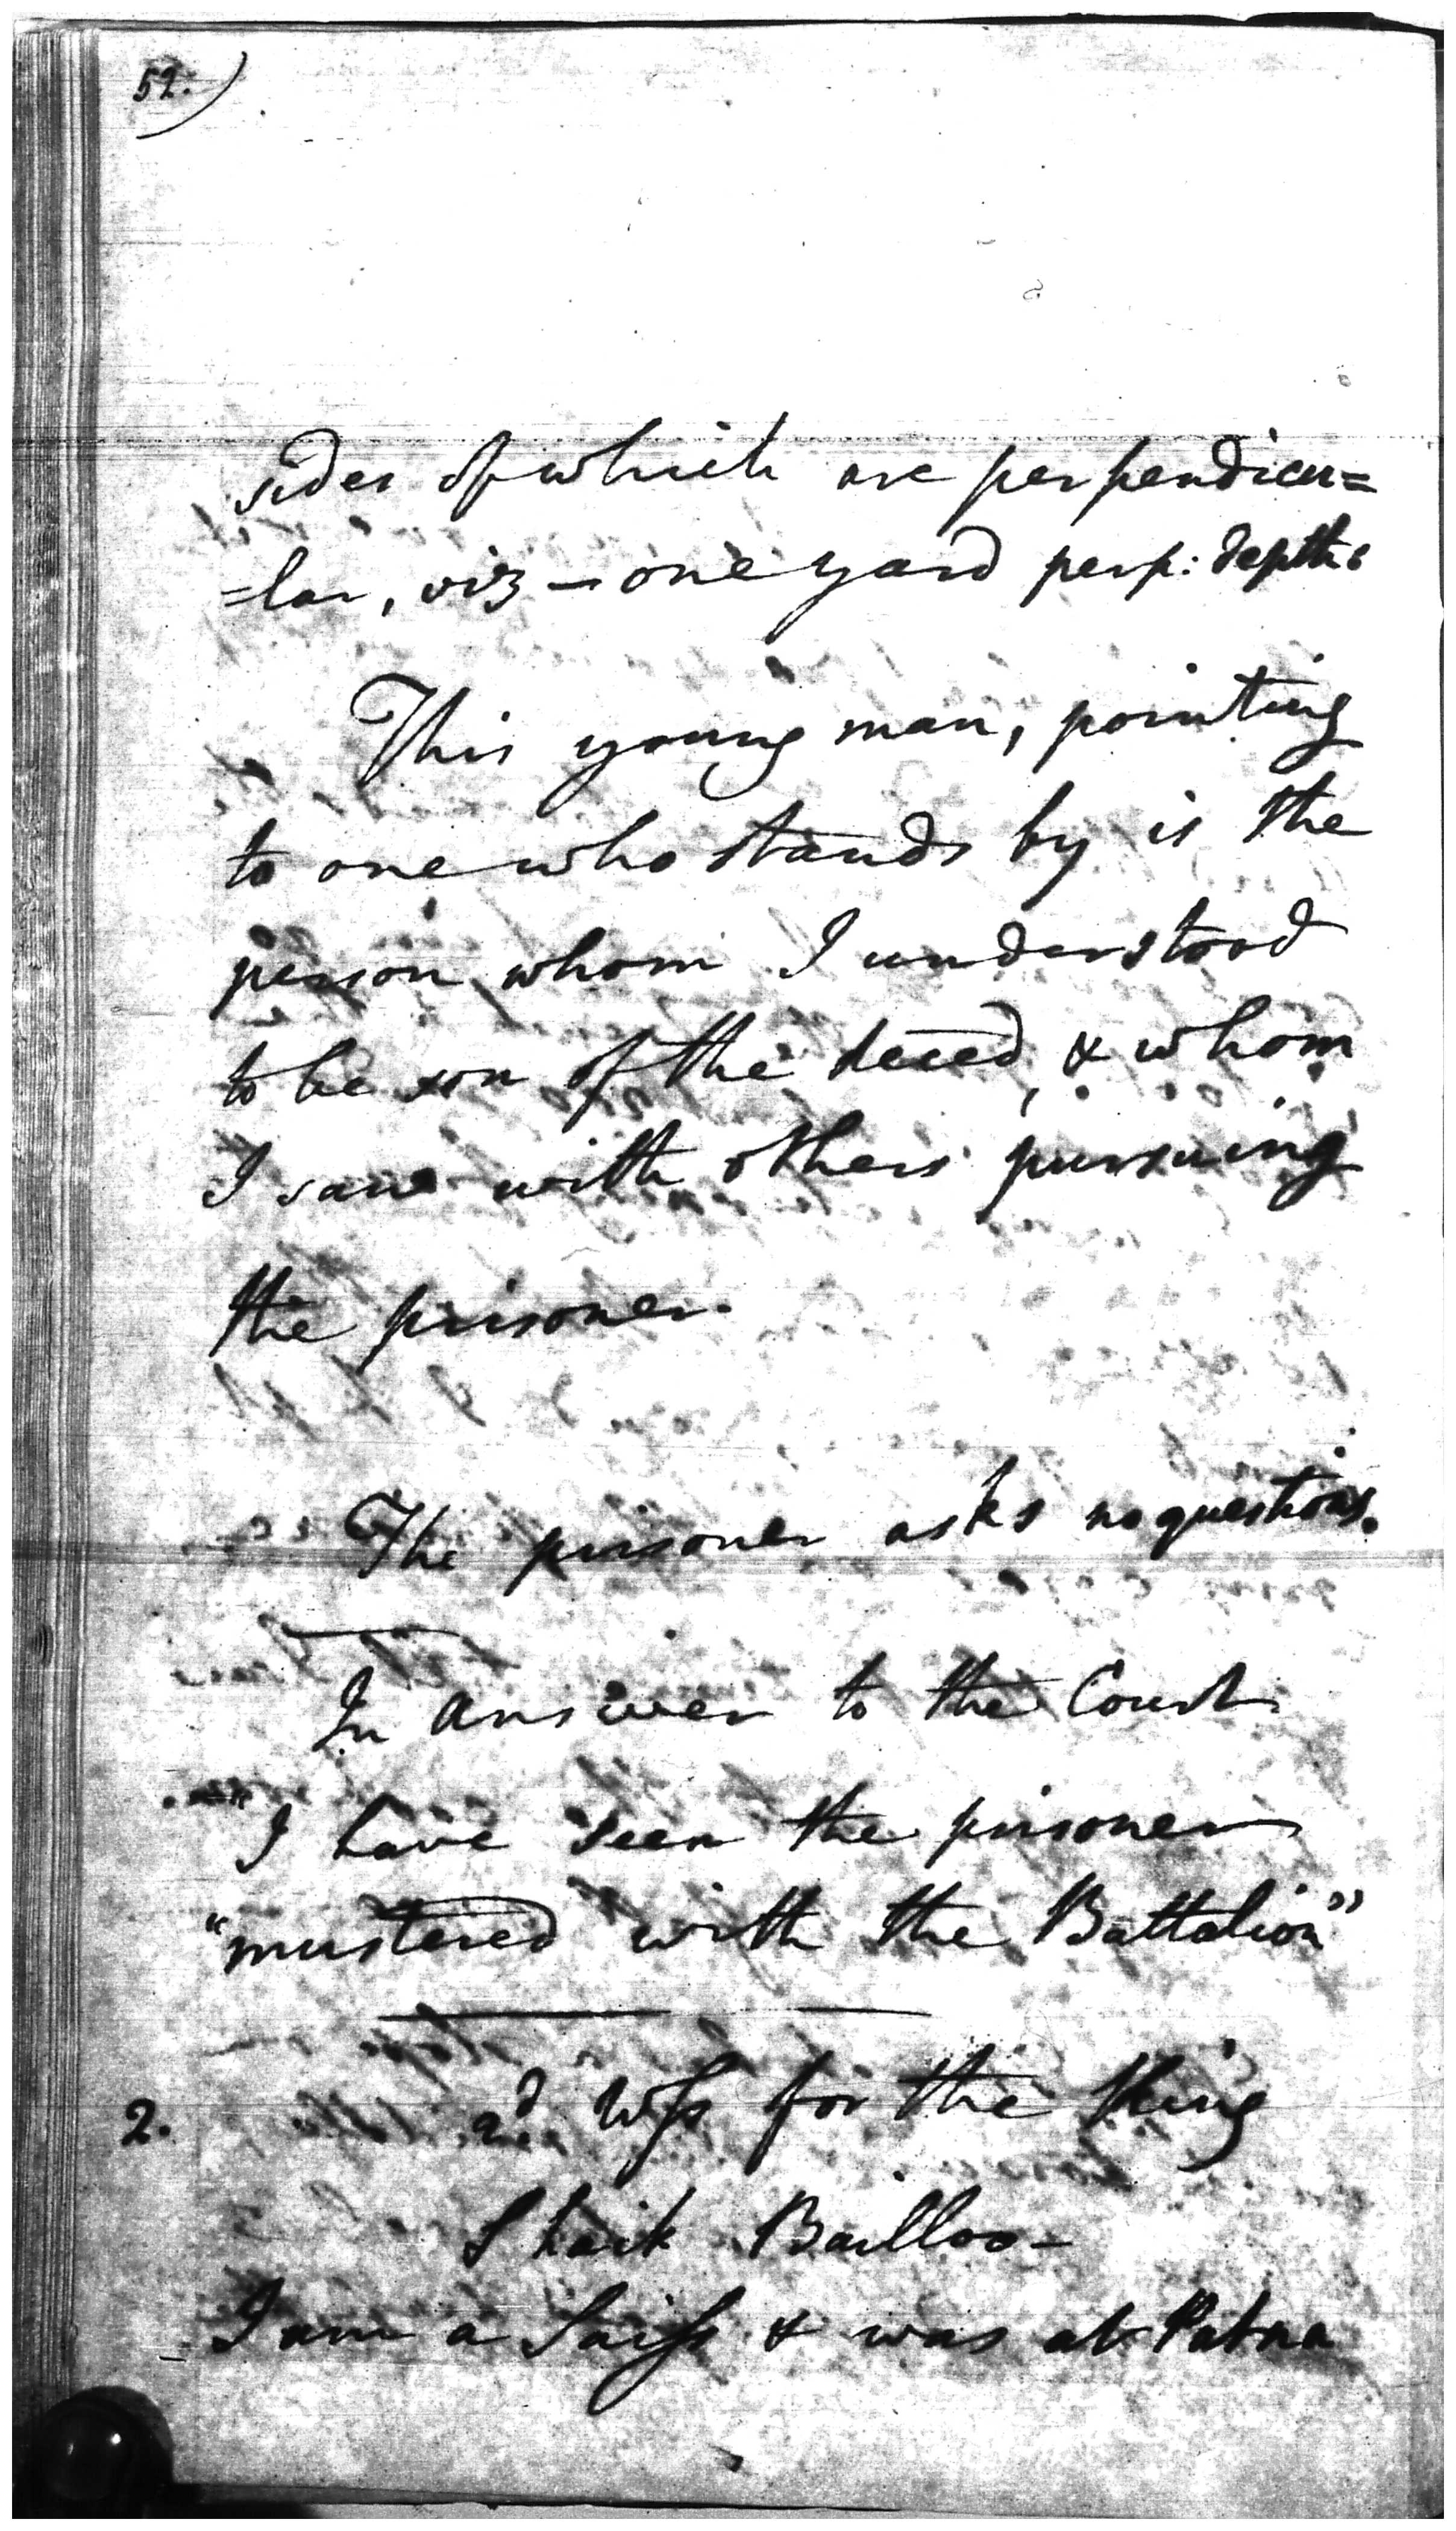 52.)
sides of which are perpendicu=
=lar, viz – one yard perp: depth.
This young man, pointing
to one who stands by is the
person whom I understood
to be son of the deced, & whom
I saw with others pursuing
the prisoner.
The prisoner asks no questions.
In answer to the Court.
"I have seen the prisoner
"mustered with the Battalion"
2. 2d Wss for the King
Shaik Bailloo –
I am a Saiss & was at Patna